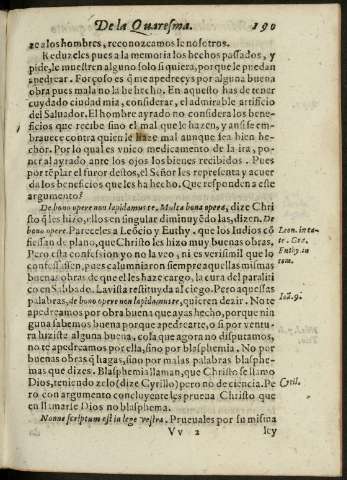 De la Quaresma. 190
ze a los hombres, reconozcamosle nosotros.
Reduzeles pues a la memoria los hechos passados, y
pide, le muestren alguno solo si quiera, porque le puedan
apedrear. Forçoso es q̃ me apedreeys por alguna buena
obra pues mala no la he hecho. En aquesto has de tener
cuydado ciudad mia, considerar, el admirable artificio
del Saluador. El hombre ayrado no considera los bene-
ficios que recibe sino el mal que le hazen, y ansi se em-
brauece contra quien le haze mal aunque sea bien he-
chor. Por lo qual es vnico medicamento de la ira, po-
ner al ayrado ante los ojos los bienes recibidos. Pues
por tẽplar el furor destos, el Señor les representa y acuer
da los beneficios que les ha hecho. Que responden a este
argumento?
De bono opere non lapidamus te. Multa bona opera, dize Chri
sto q̃ les hizo, ellos en singular diminuyẽdolas, dizen. De
bono opere. Pareceles a Leõcio y Euthy. que los Indios cõ
fiessan de plano, que Christo les hizo muy buenas obras.
Pero esta confesion yo no la veo, ni es verisimil que lo
confessassen, pues calumniaron siempre aquellas mismas
buenas obras de que el les haze cargo, la cura del paraliti
co en Sabbado. La vista restituyda al ciego. Pero aquellas
palabras, de bono opere non lapidamus te, quieren dezir. No te
apedreamos por obra buena que ayas hecho, porque nin
guna sabemos buena porque apedrearte, o si por ventu-
ra hiziste alguna buena, cosa que agora no disputamos,
no te apedreamos por ella, sino por blasphemia. No por
buenas obras q̃ hagas, sino por malas palabras blasphe-
mas que dizes. Blasphemia llaman, que Christo se llamo
Dios, teniendo zelo (dize Cyrillo) pero nõ de ciencia. Pe
ro con argumento concluyente les prueua Christo que
en llamarle Dios no blasphema.
Nonne scriptum est in lege vestra. Prueuales por su misma
Vv 2 ley
Leon. in ca-
te. Gre.
Euthy. in
com.
Ioã. 9.
Ciril.